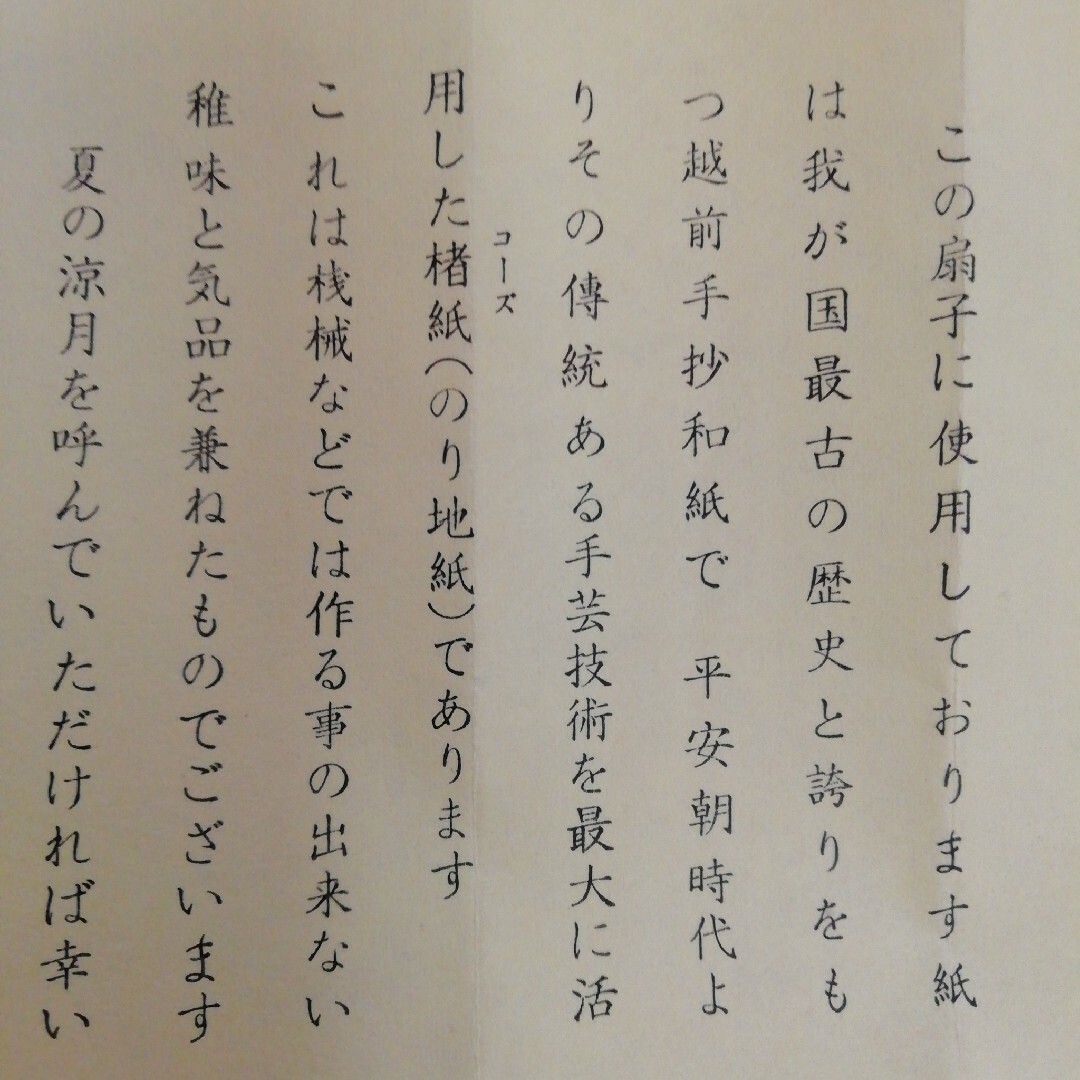 この扇子に使用しております紙
は我が国最古の歴史と誇りをも
つ越前手抄和紙で 平安朝時代よ
りその傳統ある手芸技術を最大に活
用した楮紙(のり地紙)であります
コーズ
これは桟械などでは作る事の出来ない
稚味と気品を兼ねたものでございます
夏の涼月を呼んでいただければ幸い